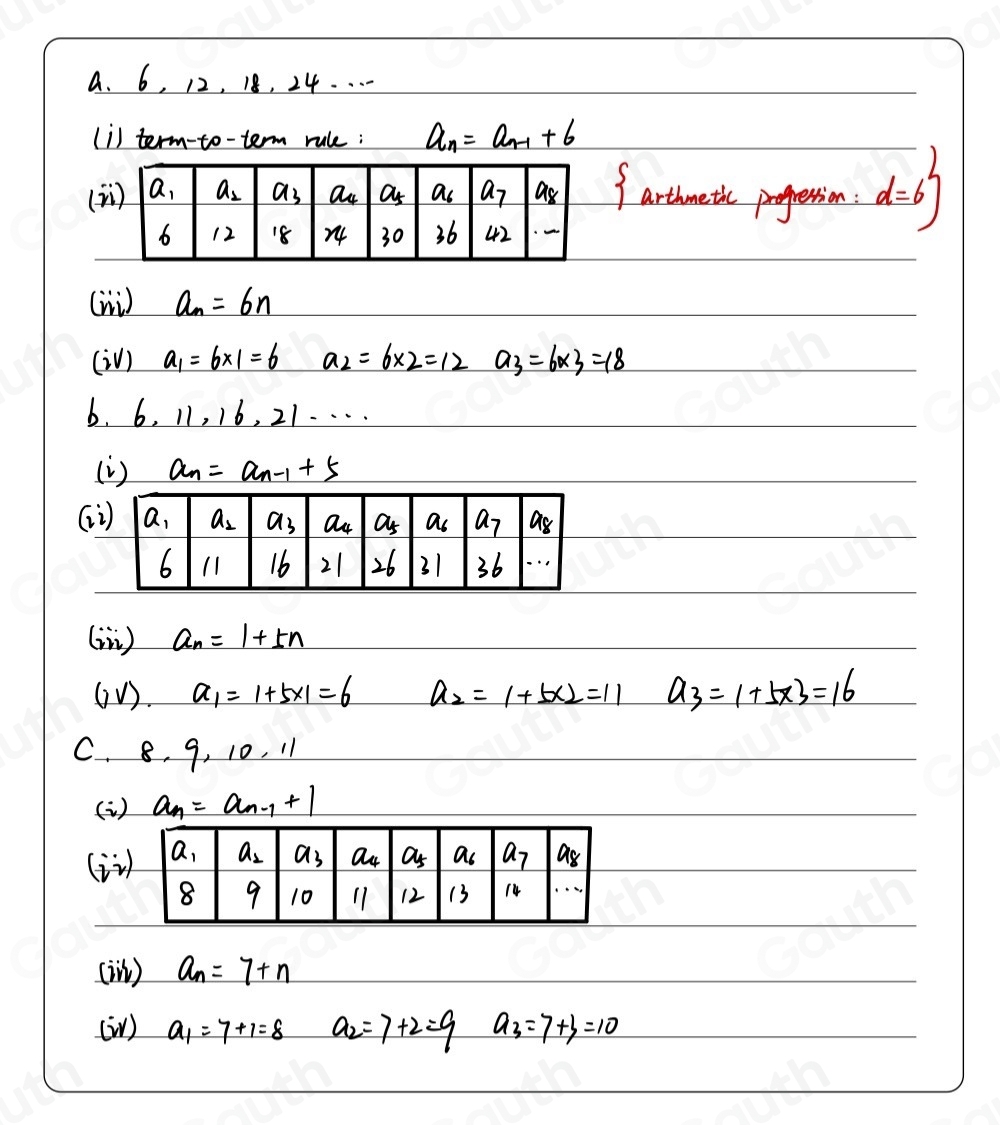 a. 6, 12, 18, 24 ....
(i) term-to-term rule: aₙ = aₙ₋₁ + 6
(ii) a₁ a₂ a₃ a₄ a₅ a₆ a₇ a₈
6 12 18 24 30 36 42 ...
{ arthmetic progression: d=6 }
(iii) aₙ = 6n
(iv) a₁ = 6×1 = 6 a₂ = 6×2 = 12 a₃ = 6×3 = 18
b. 6, 11, 16, 21 .....
(i) aₙ = aₙ₋₁ + 5
(ii) a₁ a₂ a₃ a₄ a₅ a₆ a₇ a₈
6 11 16 21 26 31 36 ...
(iii) aₙ = 1+5n
(iv). a₁ = 1+5×1 = 6 a₂ = 1+5×2 = 11 a₃ = 1+5×3 = 16
C. 8, 9, 10, 11
(i) aₙ = aₙ₋₁ + 1
(ii) a₁ a₂ a₃ a₄ a₅ a₆ a₇ a₈
8 9 10 11 12 13 14 ...
(iii) aₙ = 7+n
(iv) a₁ = 7+1 = 8 a₂ = 7+2 = 9 a₃ = 7+3 = 10
Gauth